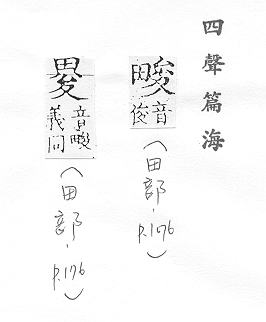 四聲篇海
畯
音
俊
(田部,p.176)
音畯
義同
(田部,p.176)